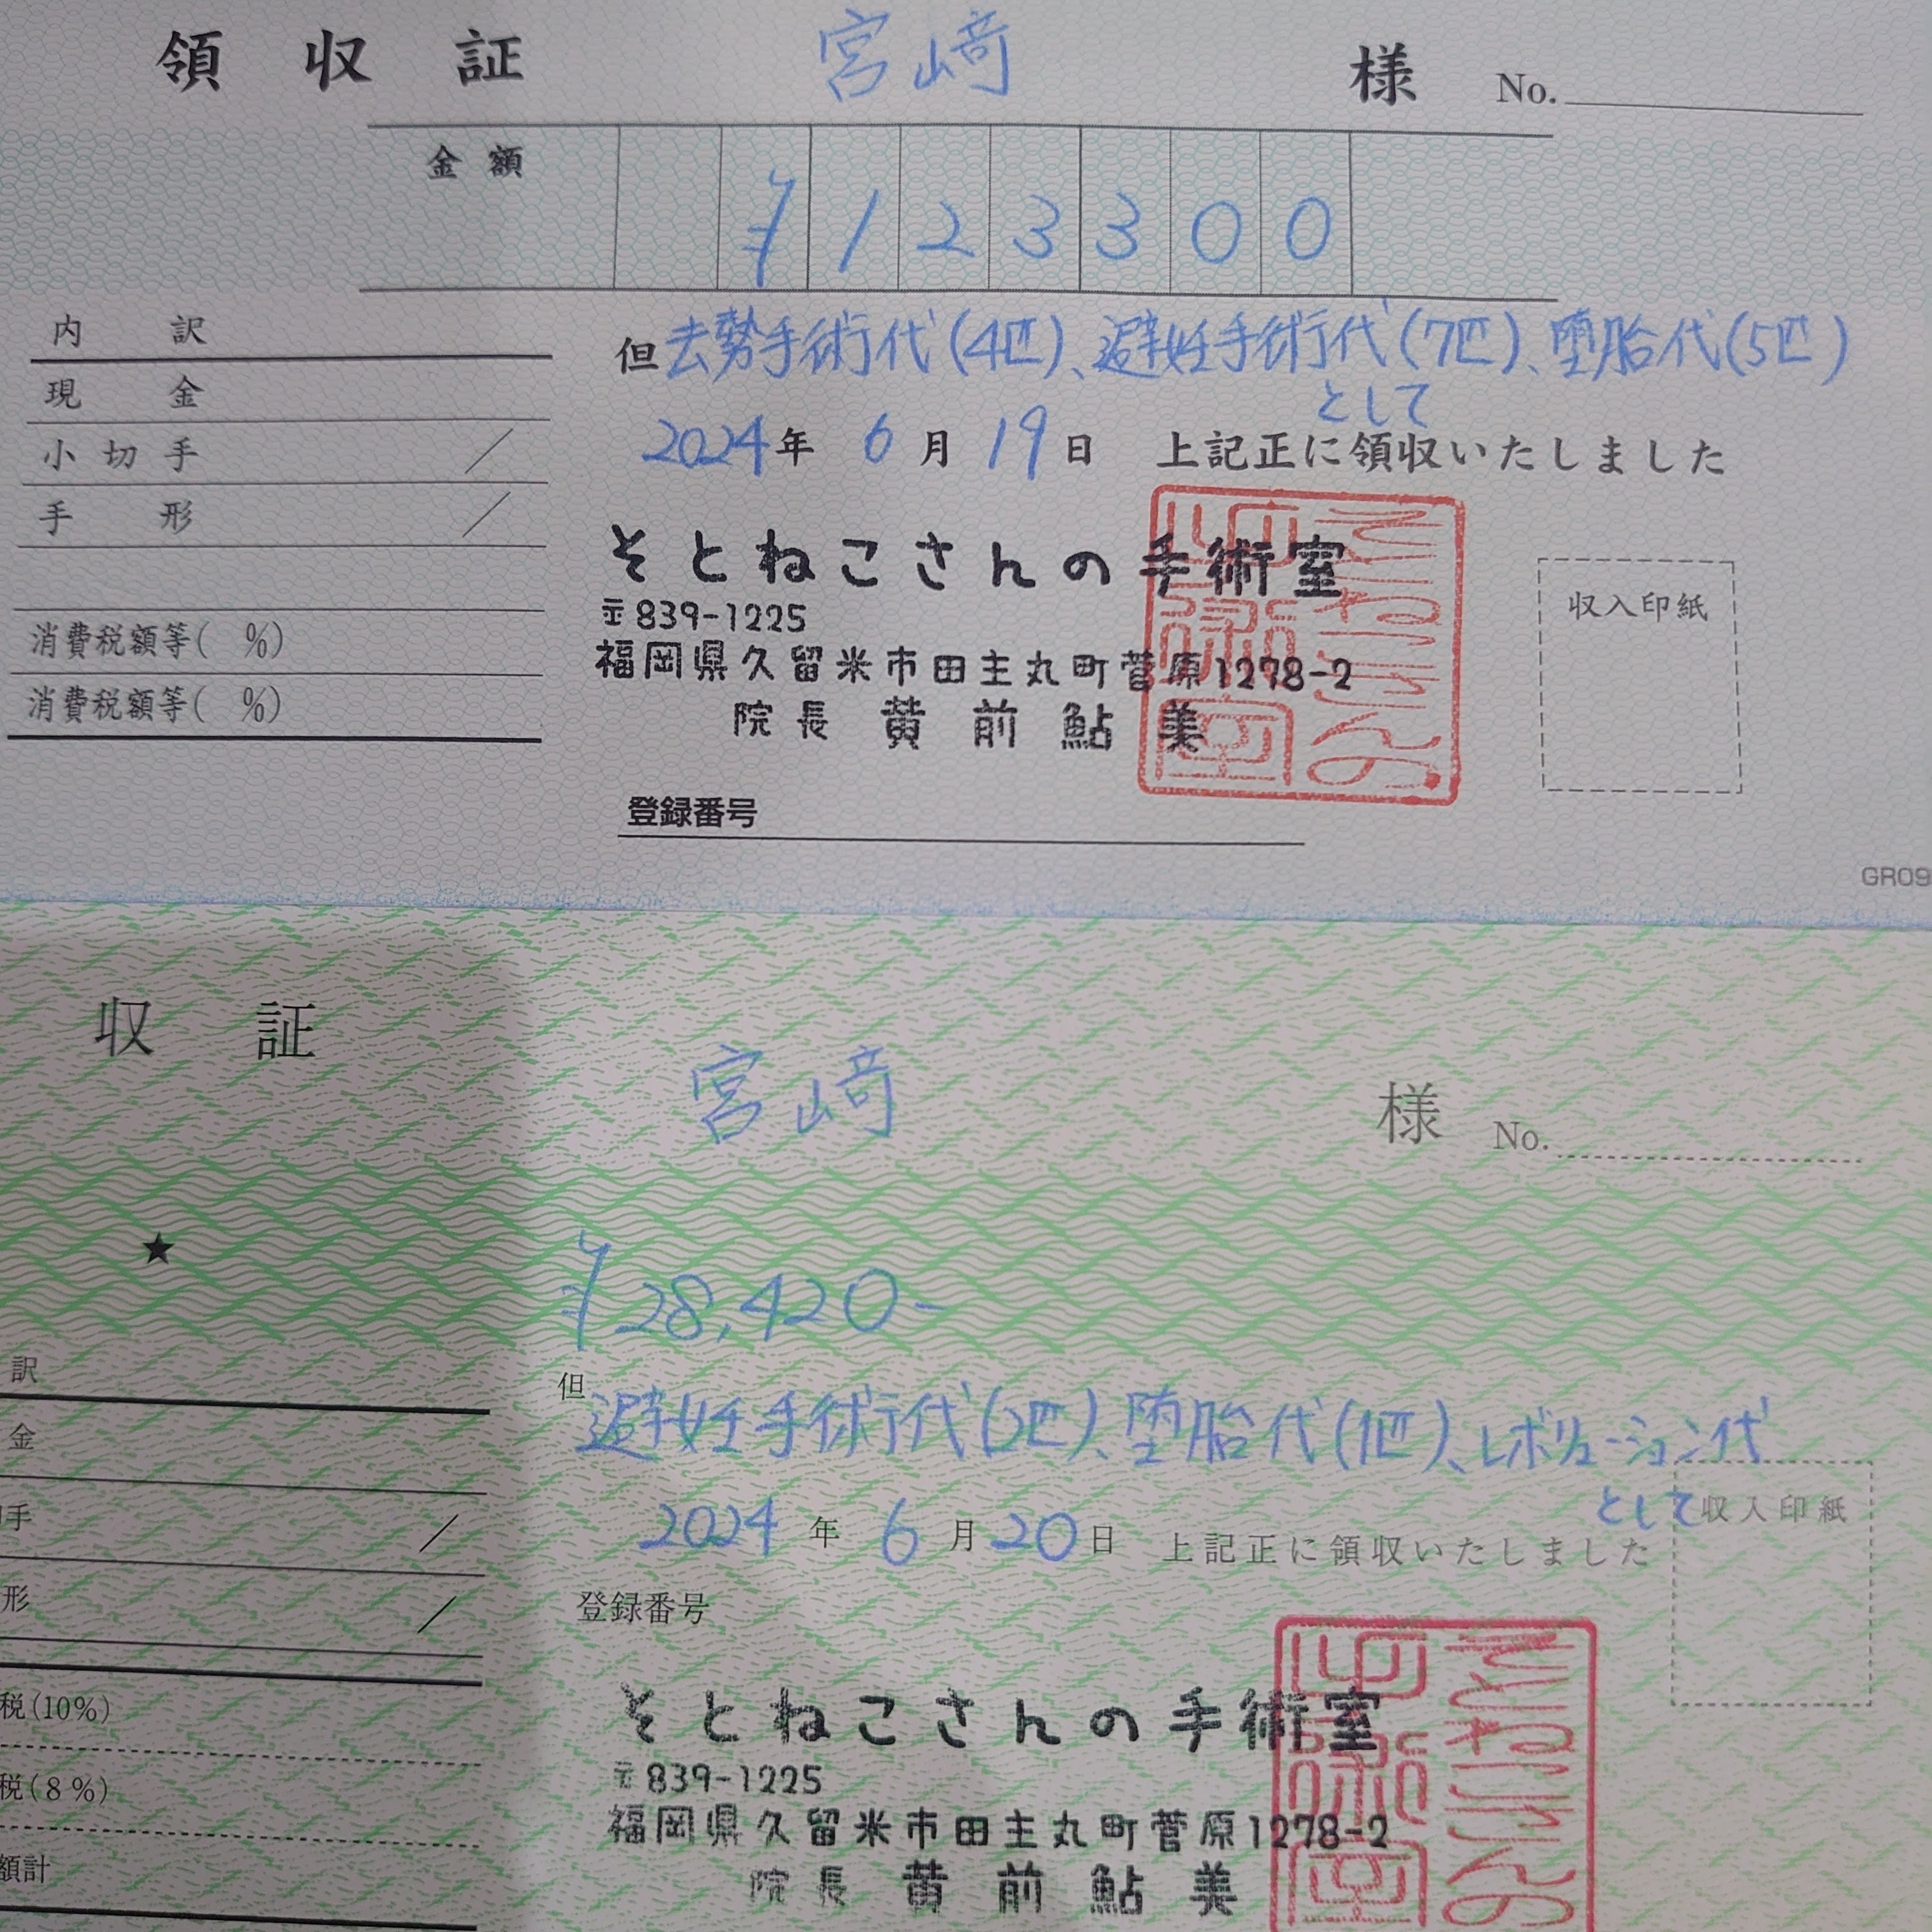 領収証 宮﨑 様 No.
金額 ¥123300
内訳
現金
小切手 /
手形 /
消費税額等( %)
消費税額等( %)
但 去勢手術代(4匹)、避妊手術代(7匹)、堕胎代(5匹)
として
2024年 6月 19日 上記正に領収いたしました
そとねこさんの手術室
〒839-1225
福岡県久留米市田主丸町菅原1278-2
院長 黄前鮎美
収入印紙
登録番号
GR09
収証 宮﨑 様 No.
★
¥28,420-
訳
金
手 /
形 /
税(10%)
税(8%)
額計
但 避妊手術代(2匹)、堕胎代(1匹)、レボリューション代
として
2024年 6月 20日 上記正に領収いたしました
収入印紙
登録番号
そとねこさんの手術室
〒839-1225
福岡県久留米市田主丸町菅原1278-2
院長 黄前鮎美